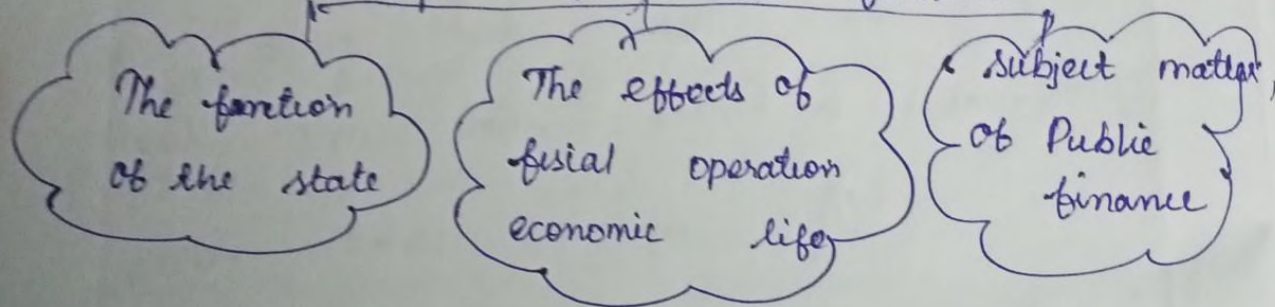 The function
of the state
The effects of
fisial operation
economic life
subject matter,
of Public
finance